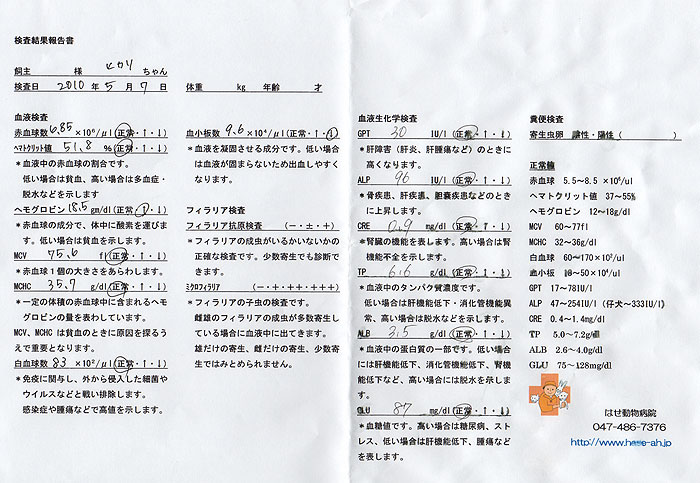 検査結果報告書
飼主 様 ヒカリ ちゃん
検査日 2010 年 5 月 7 日 体重 kg 年齢 才
血液検査
赤血球数 6.85 ×10⁶/μl (正常・↑・↓)
ヘマトクリット値 51.8 % (正常・↑・↓)
*血液中の赤血球の割合です。
低い場合は貧血、高い場合は多血症・
脱水などを示します
ヘモグロビン 18.5 gm/dl (正常・↑・↓)
*赤血球の成分で、体中に酸素を運びま
す。低い場合は貧血を示します。
MCV 75.6 fl (正常・↑・↓)
*赤血球1個の大きさをあらわします。
MCHC 35.7 g/dl (正常・↑・↓)
*一定の体積の赤血球中に含まれるヘモ
グロビンの量を表わしています。
MCV、MCHC は貧血のときに原因を探るう
えで重要となります。
白血球数 83 ×10²/μl (正常・↑・↓)
*免疫に関与し、外から侵入した細菌や
ウイルスなどと戦い排除します。
感染症や腫瘍などで高値を示します。
血小板数 9.6 ×10⁴/μl (正常・↑・↓)
*血液を凝固させる成分です。低い場合
は血液が固まらないため出血しやすく
なります。
フィラリア検査
フィラリア抗原検査 (-・±・+)
*フィラリアの成虫がいるかいないかの
正確な検査です。少数寄生でも診断で
きます。
ミクロフィラリア (-・+・++・+++)
*フィラリアの子虫の検査です。
雌雄のフィラリアの成虫が多数寄生し
ている場合に血液中に出てきます。
雄だけの寄生、雌だけの寄生、少数寄
生ではみとめられません。
血液生化学検査
GPT 30 IU/l (正常・↑・↓)
*肝障害(肝炎、肝腫瘍など)のときに
高くなります。
ALP 96 IU/l (正常・↑・↓)
*骨疾患、肝疾患、胆嚢疾患などのとき
に上昇します。
CRE 0.9 mg/dl (正常・↑・↓)
*腎臓の機能を表します。高い場合は腎
機能不全を示します。
TP 6.6 g/dl (正常・↑・↓)
*血液中のタンパク質濃度です。
低い場合は肝機能低下・消化管機能異
常、高い場合は脱水などを示します。
ALB 3.5 g/dl (正常・↑・↓)
*血液中の蛋白質の一部です。低い場合
には肝機能低下、消化管機能低下、腎機
能低下など、高い場合には脱水を示しま
す。
GLU 87 mg/dl (正常・↑・↓)
*血糖値です。高い場合は糖尿病、スト
レス、低い場合は肝機能低下、腫瘍など
を表します。
糞便検査
寄生虫卵 陰性・陽性 ( )
正常値
赤血球 5.5~8.5 ×10⁶/ul
ヘマトクリット値 37~55%
ヘモグロビン 12~18g/dl
MCV 60~77fl
MCHC 32~36g/dl
白血球 60~170×10²/ul
血小板 18~50×10⁴/ul
GPT 17~78IU/l
ALP 47~254IU/l (仔犬~333IU/l)
CRE 0.4~1.4mg/dl
TP 5.0~7.2g/dl
ALB 2.6~4.0g/dl
GLU 75~128mg/dl
はせ動物病院
047-486-7376
http://www.hase-ah.jp